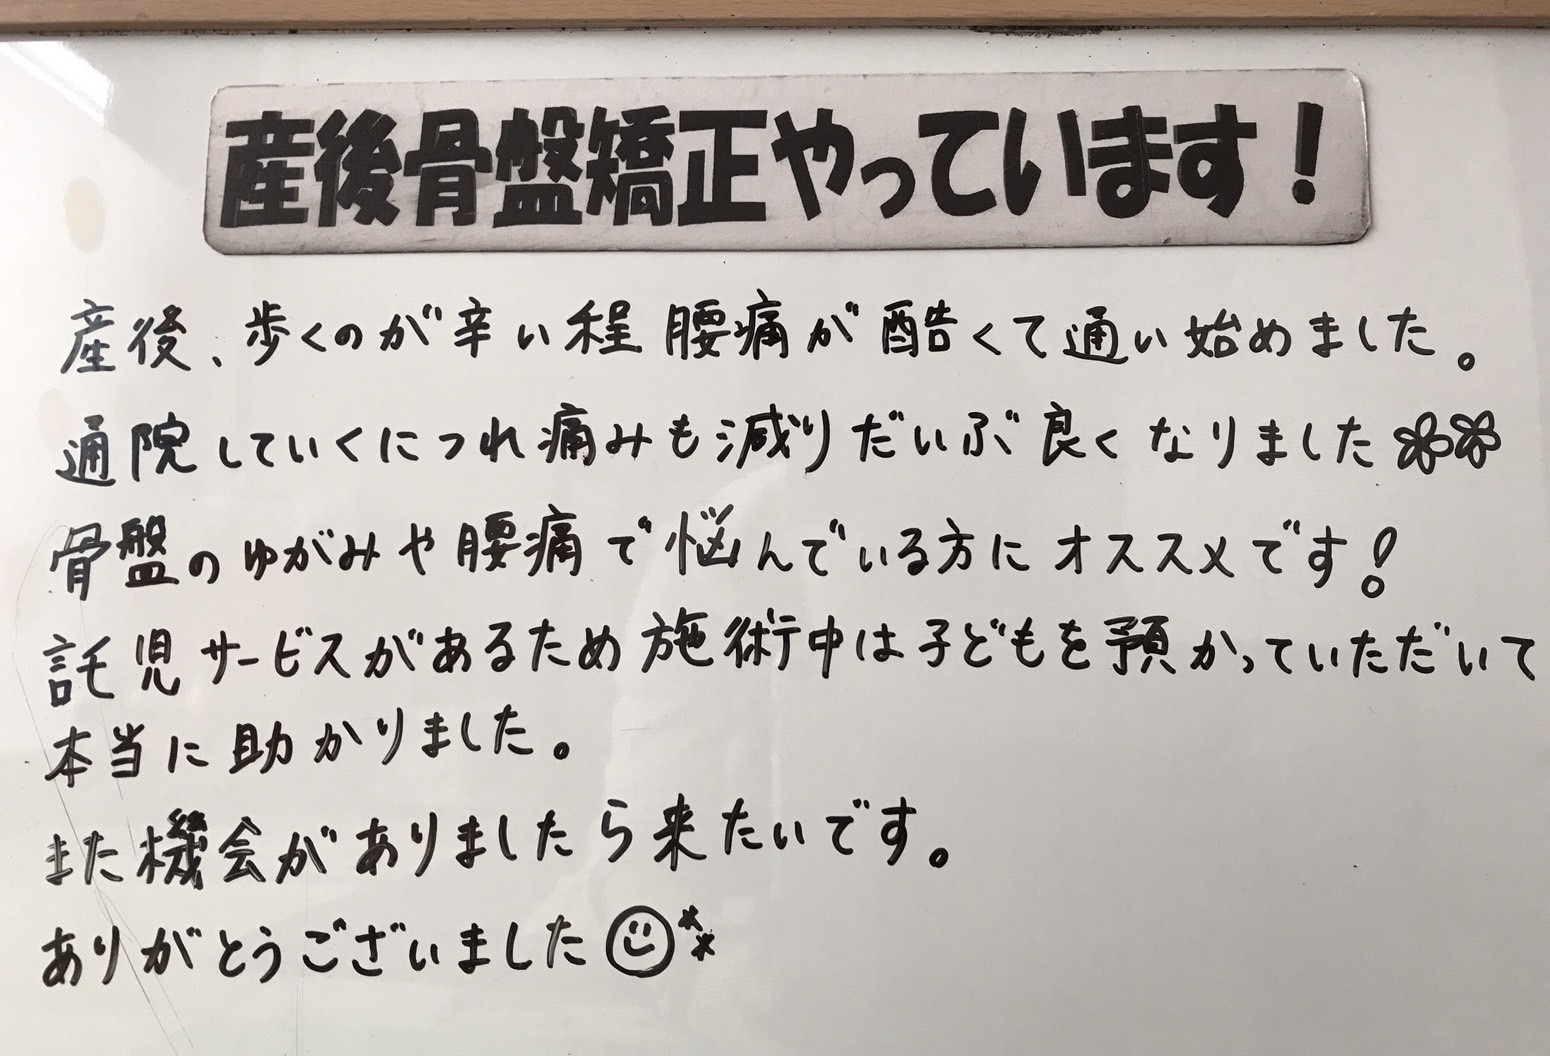 産後骨盤矯正やっています!
産後、歩くのが辛い程腰痛が酷くて通い始めました。
通院していくにつれ痛みも減りだいぶ良くなりました
骨盤のゆがみや腰痛で悩んでいる方にオススメです!
託児サービスがあるため施術中は子どもを預かっていただいて
本当に助かりました。
また機会がありましたら来たいです。
ありがとうございました